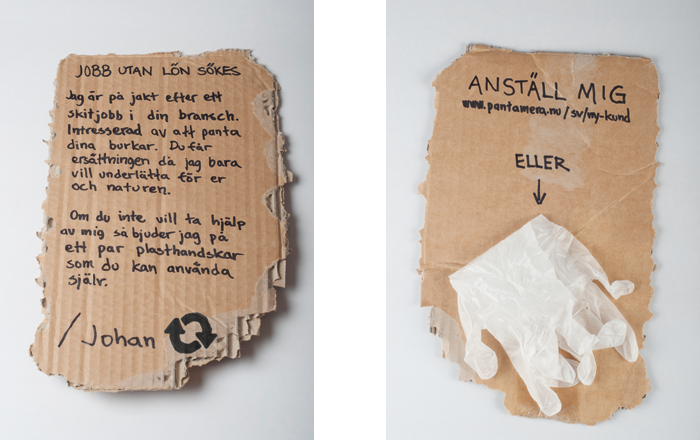 JOBB UTAN LÖN SÖKES
Jag är på jakt efter ett
skitjobb i din bransch.
Intresserad av att panta
dina burkar. Du får
ersättningen då jag bara
vill underlätta för er
och naturen.
Om du inte vill ta hjälp
av mig så bjuder jag på
ett par plasthandskar
som du kan använda
själv.
/Johan
ANSTÄLL MIG
www.pantamera.nu/sv/ny-kund
ELLER